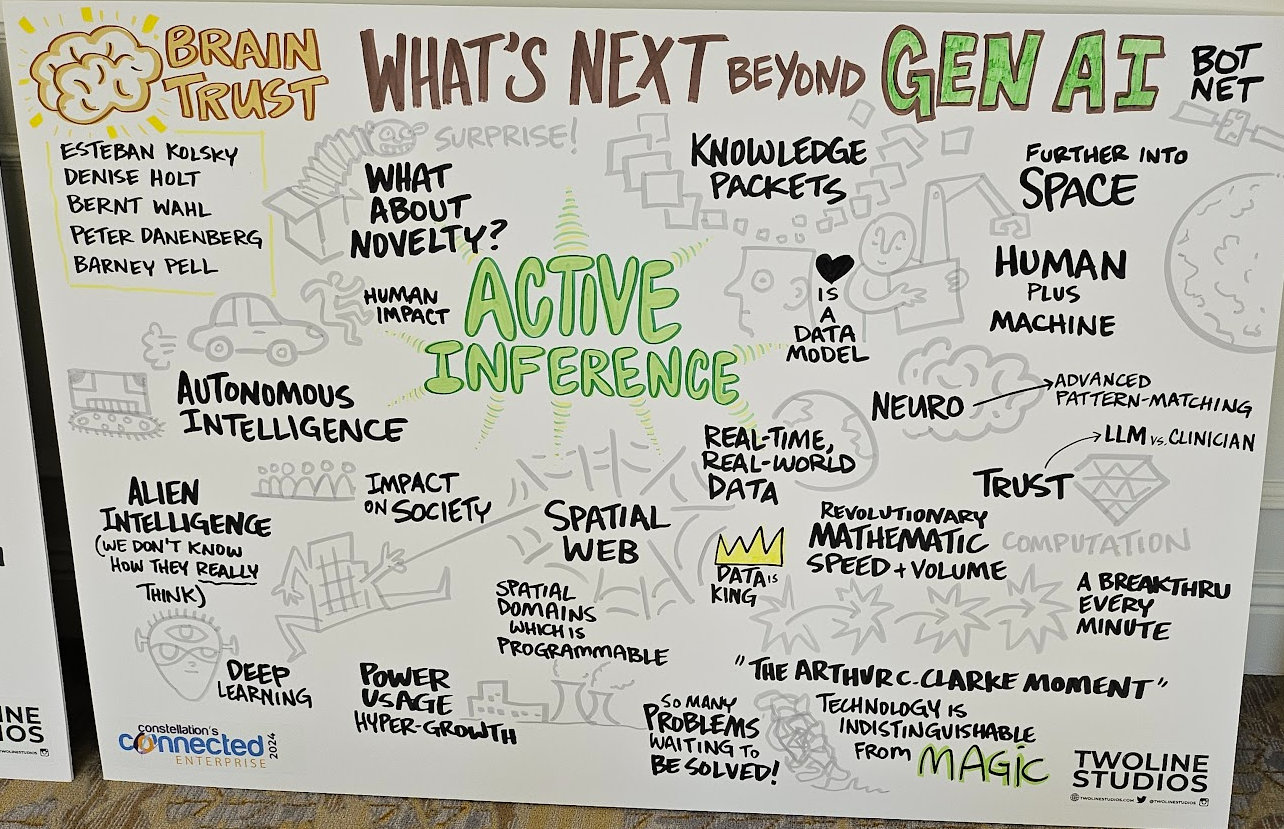 BRAIN
TRUST
WHAT'S NEXT BEYOND GEN AI
BOT
NET
ESTEBAN KOLSKY
DENISE HOLT
BERNT WAHL
PETER DANENBERG
BARNEY PELL
SURPRISE!
WHAT
ABOUT
NOVELTY?
KNOWLEDGE
PACKETS
FURTHER INTO
SPACE
HUMAN
IMPACT
ACTIVE
INFERENCE
IS
A
DATA
MODEL
HUMAN
PLUS
MACHINE
AUTONOMOUS
INTELLIGENCE
NEURO
ADVANCED
PATTERN-MATCHING
REAL-TIME,
REAL-WORLD
DATA
LLM VS. CLINICIAN
TRUST
ALIEN
INTELLIGENCE
(WE DON'T KNOW
HOW THEY REALLY
THINK)
IMPACT
ON SOCIETY
SPATIAL
WEB
SPATIAL
DOMAINS
WHICH IS
PROGRAMMABLE
DATA IS
KING
REVOLUTIONARY
MATHEMATIC
SPEED + VOLUME
COMPUTATION
A BREAKTHRU
EVERY
MINUTE
DEEP
LEARNING
POWER
USAGE
HYPER-GROWTH
SO MANY
PROBLEMS
WAITING TO
BE SOLVED!
"THE ARTHUR C. CLARKE MOMENT"
TECHNOLOGY IS
INDISTINGUISHABLE
FROM MAGIC
constellation's
connected
ENTERPRISE
2024
TWOLINE
STUDIOS
TWOLINESTUDIOS.COM @TWOLINESTUDIOS
INE
IOS